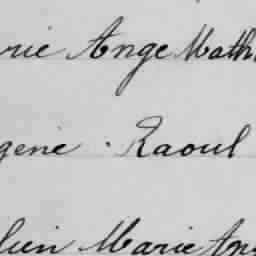 rie Ange Math
gene . Raoul
lien Marie Ang